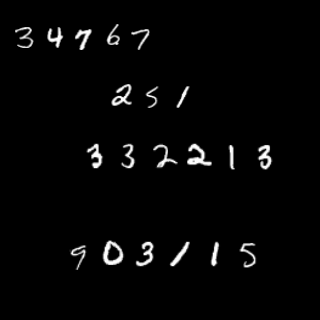 34767
251
332213
903115